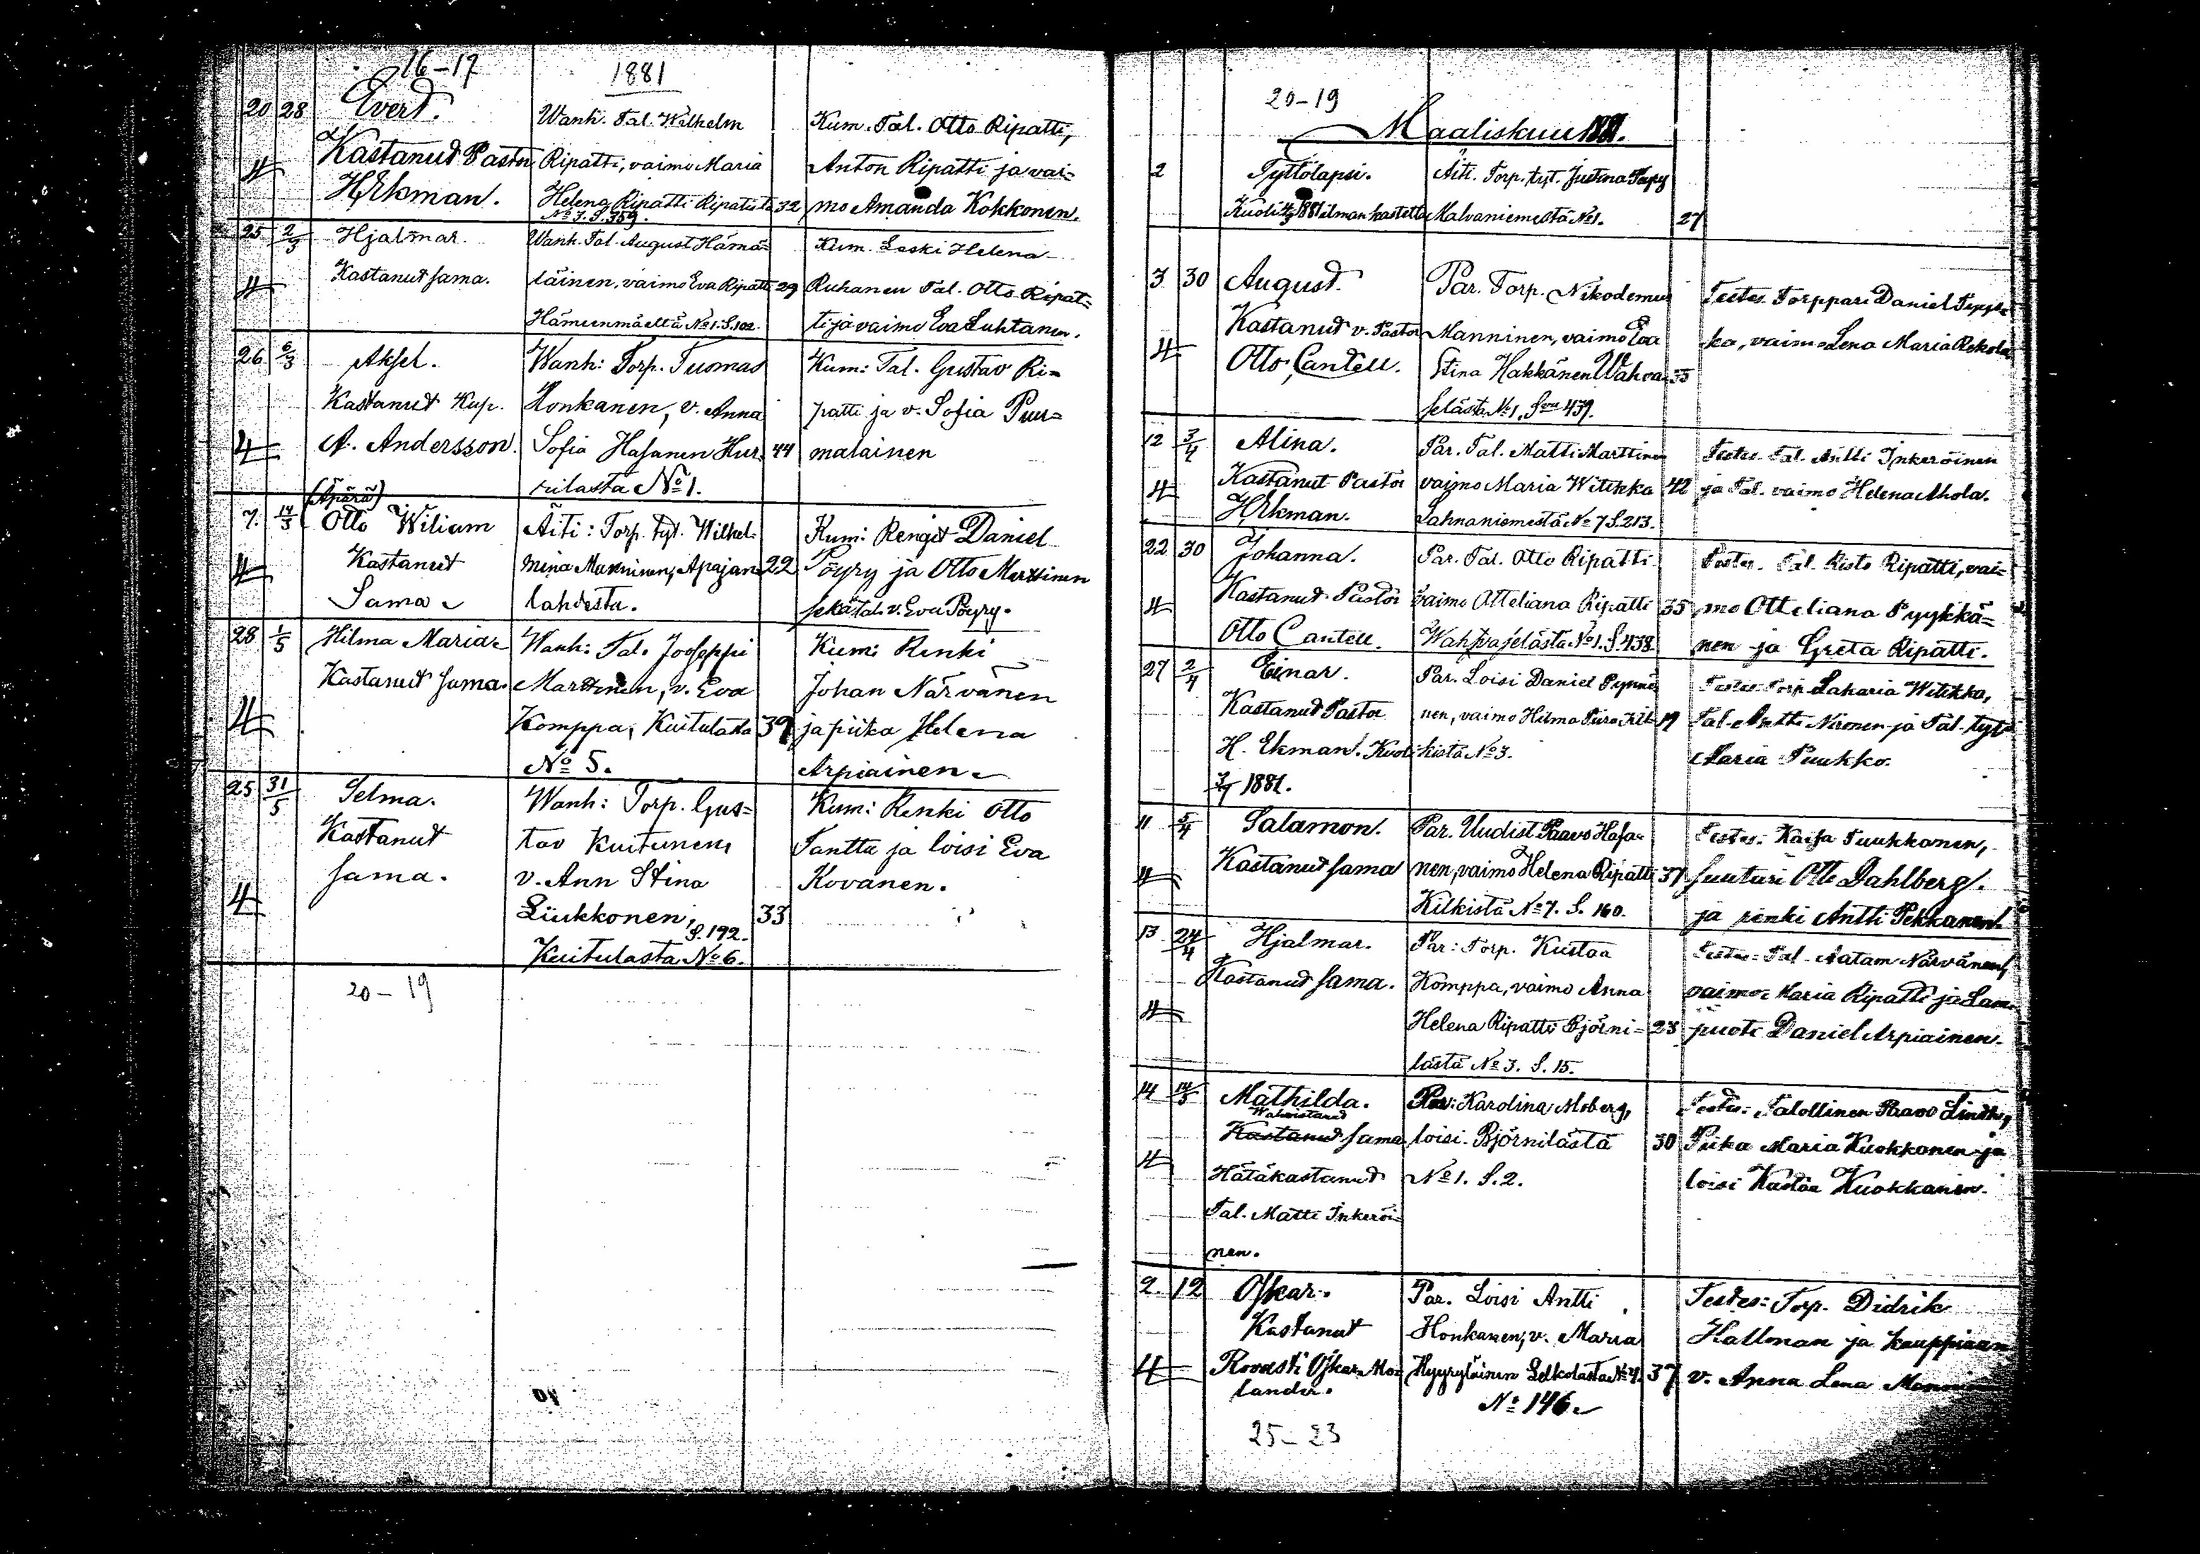 16-17
1881
20 28 Evert. Wanh. Tal. Wilhelm Kum. Tal. Otto Ripatti,
Kastanud Pastor Ripatti, vaimo Maria Anton Ripatti ja vai-
H Ekman. Helena Ripatti 32 mo Amanda Kokkonen.
No 3. S. 359.
25 2/3 Hjalmar. Wanh. Tal. August Hämä- Kum. Leski Helena
Kastanut sama. läinen, vaimo Eva Ripatti 29 Ruhanen Tal. Otto Ripat-
Hämeenmäeltä No 1. S. 102. ti ja vaimo Eva Luhtanen.
26 6/3 Aksel. Wanh: Torp. Tuomas Kum: Tal. Gustav Ri-
Kastanut Kap. Honkanen, v. Anna patti ja v. Sofia Pur-
4 A. Andersson. Sofia Hasanen Hur- 44 malainen
rilasta No 1.
(Äpärä)
7. 14/3 Otto Wiliam Äiti: Torp. tyt. Wilhel- Kum: Rengit Daniel
Kastanut mina Manninen, Apajan- 22 Pöyry ja Otto Marttinen
Sama lahdesta. sekä tal. v. Eva Pöyry.
28 1/5 Hilma Maria Wanh: Tal. Joseppi Kum: Renki
Kastanut sama. Marttinen, v. Eva Johan Närvänen
4 Komppa, Kuitulasta 39 ja piika Helena
No 5. Arpiainen
25 31/5 Selma. Wanh: Torp. Gus- Kum: Renki Otto
Kastanut tav Kuitunen Tanttu ja loisi Eva
sama. v. Ann Stina Kovanen.
4 Liukkonen, 33
S. 192.
Kuitulasta No 6.
20-19
20-19
Maaliskuu 1881.
2 Tyttölapsi. Äiti. Torp. tyt. Justina
Kuoli 1881 ilman kastetta Malvaniemestä No 1. 27
3 30 August. Par. Torp. Nikodemus Testes. Torppari Daniel
Kastanut v. Pastor Manninen, vaimo Eva ka, vaimo Lena Maria
4 Otto Cantell. Stina Hakkänen 35
selästä No 1. 439.
12 3/4 Alina. Par. Tal. Matti Marttinen Testes. Tal. Antti Inkeröinen
4 Kastanut Pastor vaimo Maria Witikka 42 ja Tal. vaimo Helena Ahola.
H Ekman. Lahnaniemestä No 7 S. 213.
22 30 Johanna. Par. Tal. Otto Ripatti Testes. Tal. Risto Ripatti, vai-
4 Kastanut Pastor vaimo Otteliana Ripatti 35 mo Otteliana Pyykkä-
Otto Cantell. Wahvaselästä No 1. S. 438. nen ja Greta Ripatti.
27 2/4 Einar. Par. Loisi Daniel Pynnö- Testes. Torp. Sakaria Witikka,
Kastanut Pastor nen, vaimo Hilma 19 Tal. Antti Nironen ja Tal. tyt.
H. Ekman. Kuoli kistä No 3. Maria Puukko.
1881.
11 5/4 Salamon. Par. Uudist. Paavo Hasa- Testes. Kaisa Tuukkanen,
4 Kastanut sama nen, vaimo Helena Ripatti 37 suutari Otto Dahlberg.
Kilkistä No 7. S. 160. ja renki Antti Pekkanen.
13 24/4 Hjalmar. Par: Torp. Kustaa Testes: Tal. Aatam Närvänen,
Kastanut sama. Komppa, vaimo Anna vaimo Maria Ripatti ja Lam-
4 Helena Ripatti Björni- 23 puoti Daniel Arpiainen.
lästä No 3. S. 15.
14 14/3 Mathilda. Par: Karolina Moberg, Testes: Talollinen Paavo
Wahvistanut
Kastanut sama loisi. Björnilästä 30 Piika Maria Kuokkanen ja
4 Hätäkastanut No 1. S. 2. loisi Kustaa Kuokkanen.
Tal. Matti Inkeröi-
nen.
2. 12 Oskar. Par. Loisi Antti Testes: Torp. Didrik
Kastanut Honkanen, v. Maria Hallman ja kauppiaan
4 Rovasti Oskar Mo- Hyyryläinen Selkolasta No 4. 37 v. Anna Lena
lander. No 146.
25-23